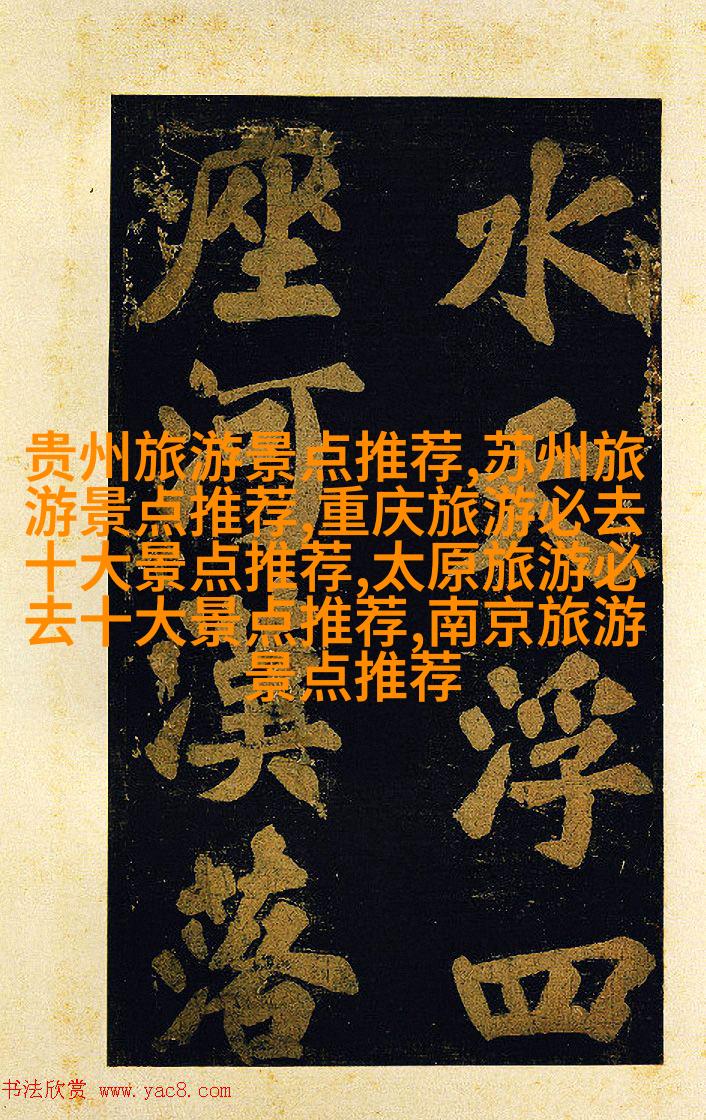 水天浮四
座河漢落
贵州旅游景点推荐,苏州旅
游景点推荐,重庆旅游必去
十大景点推荐,太原旅游必
去十大景点推荐,南京旅游
景点推荐
书法欣赏 www.yac8.com